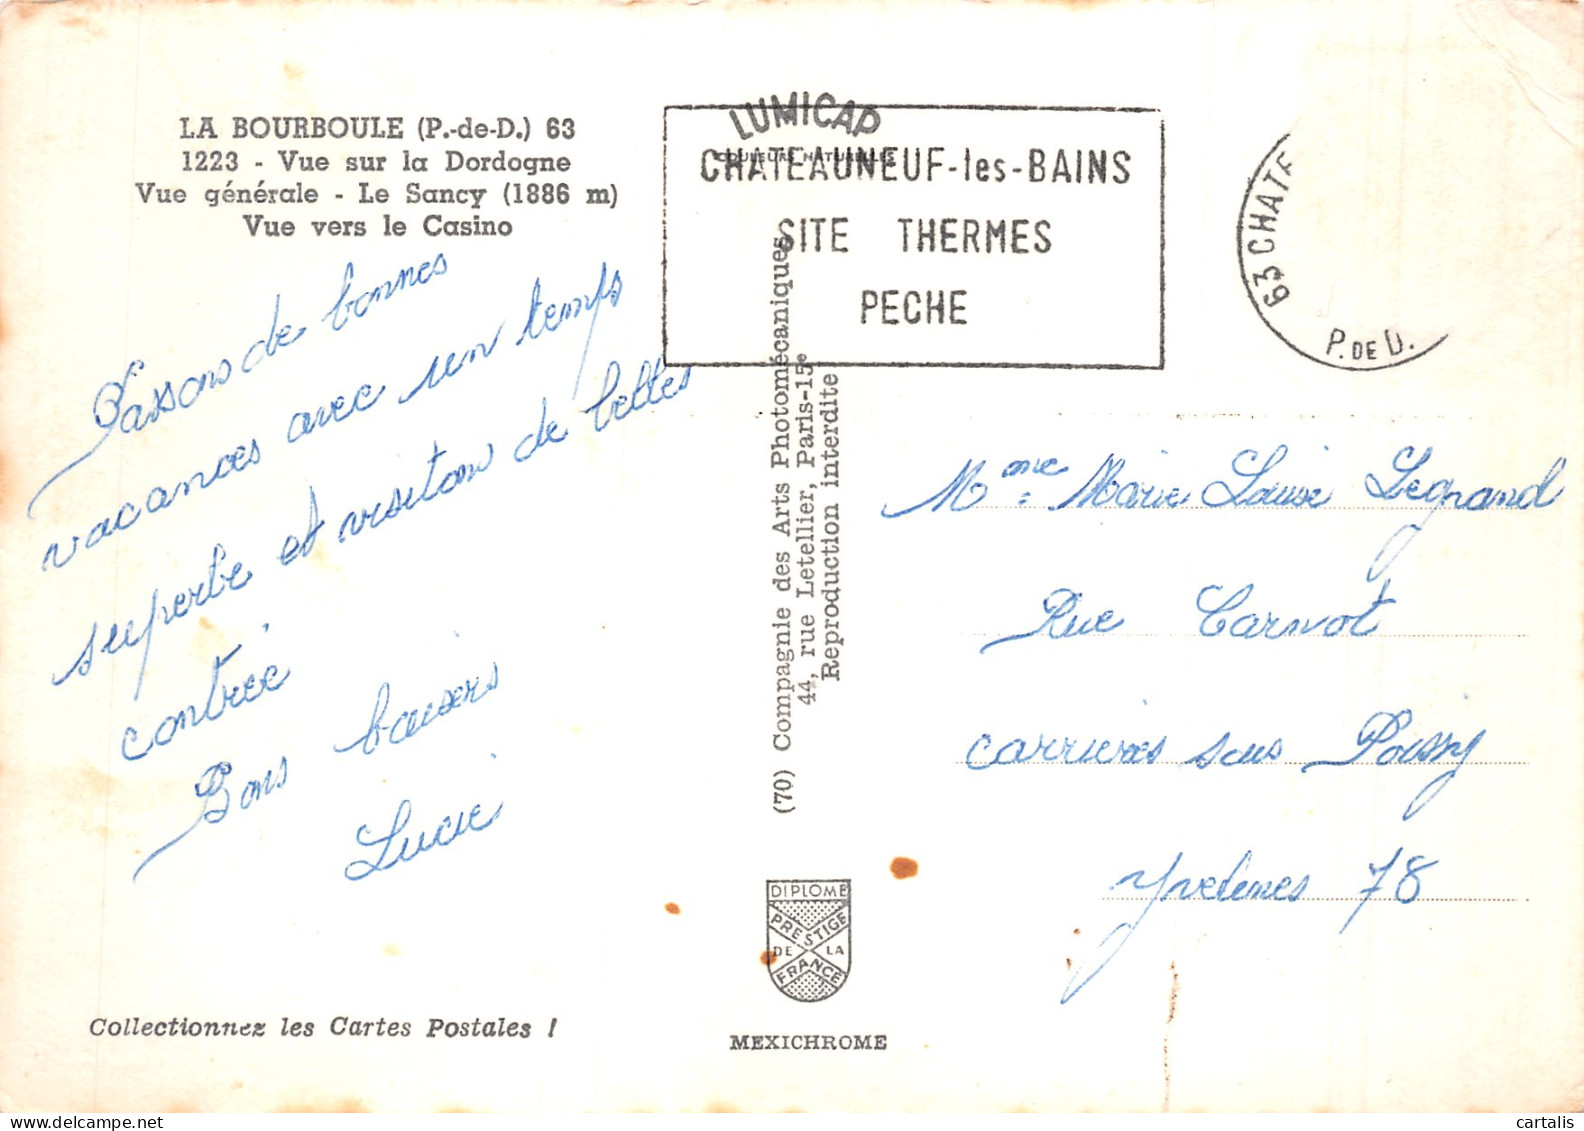 LA BOURBOULE (P.-de-D.) 63
1223 - Vue sur la Dordogne
Vue générale - Le Sancy (1886 m)
Vue vers le Casino
Passons de bonnes
vacances avec un temps
superbe et visiton de belles
contrée
Bons baisers
Lucie
Collectionnez les Cartes Postales !
LUMICAP
COULEURS NATURELLES
CHATEAUNEUF-les-BAINS
SITE THERMES
PECHE
63 CHATE
P. DE D.
(70) Compagnie des Arts Photomécaniques
44, rue Letellier, Paris-15e
Reproduction interdite
DIPLOME
PRESTIGE
DE LA
FRANCE
MEXICHROME
Mme Marie Louise Legrand
Rue Carnot
carrières sous Poissy
Yvelines 78
cartalis